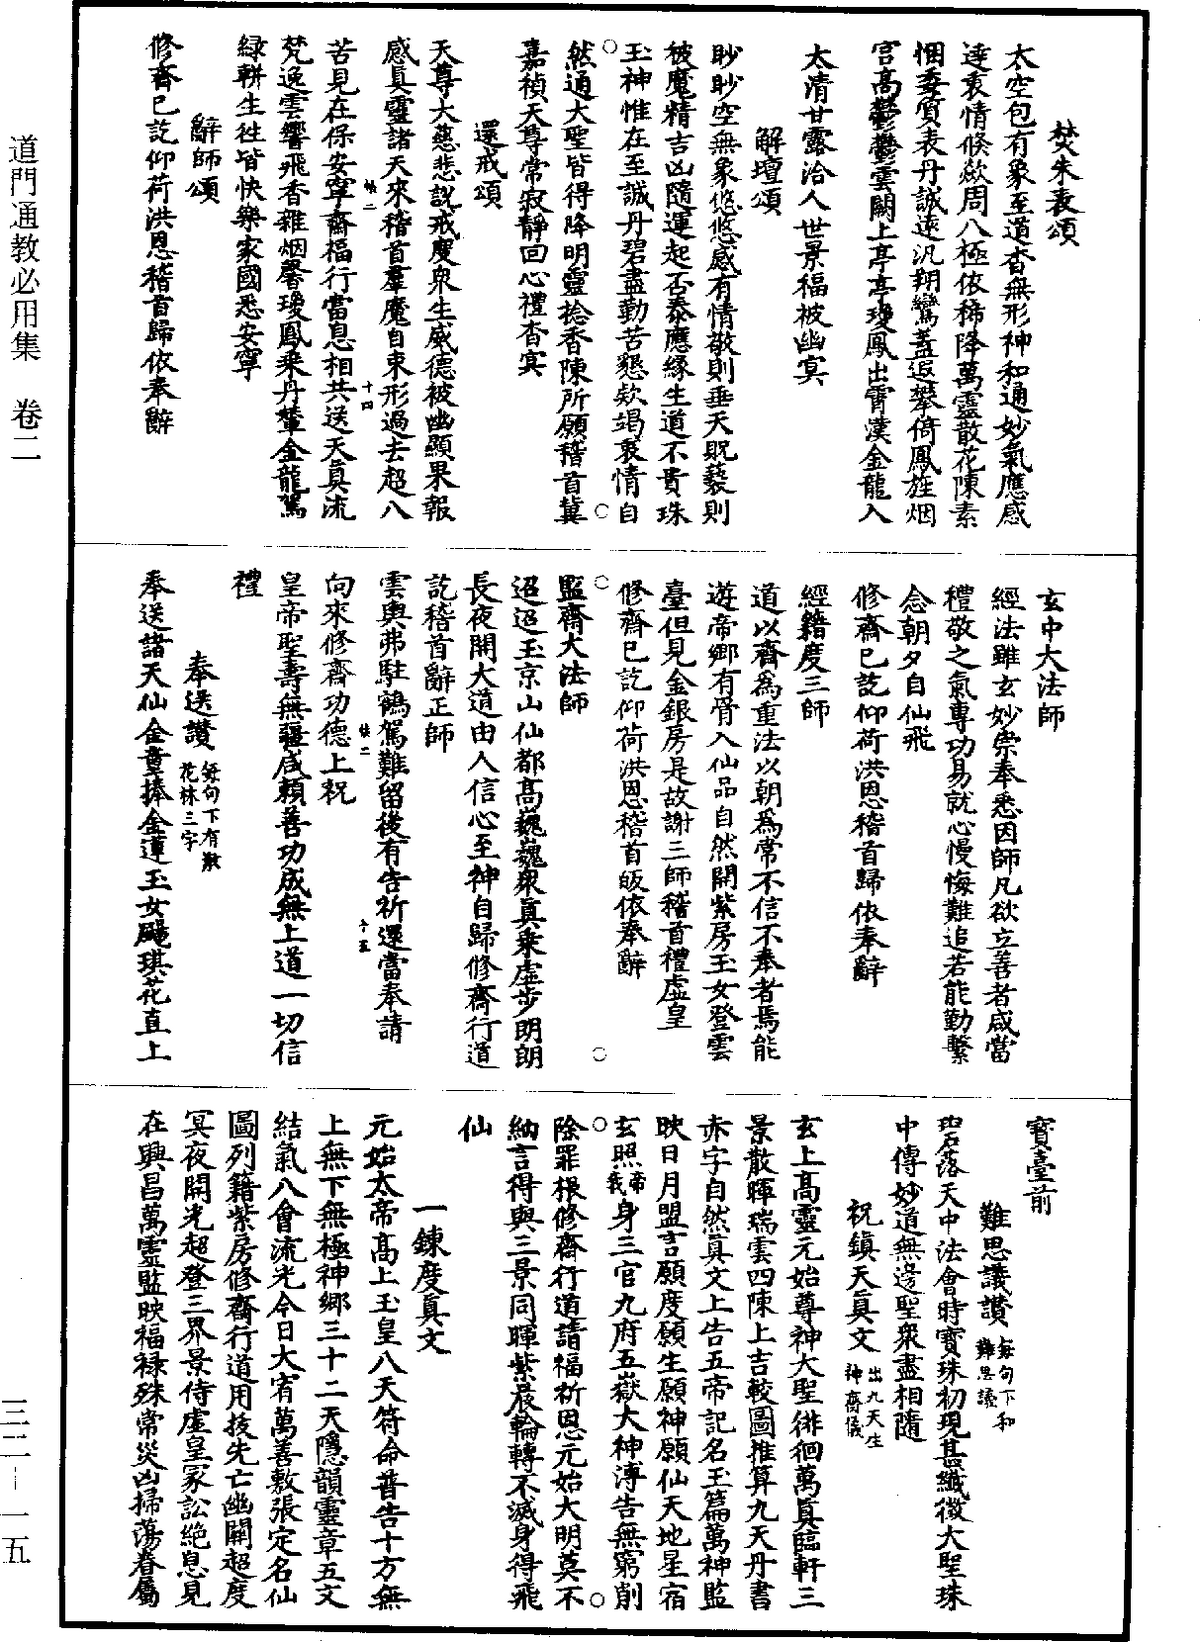 焚朱表頌
太空包有象至道杳無形神和通妙氣應感
達衷情倏歘周八極依稀降萬靈散花陳素
悃委質表丹誠遠汎翔鸞蓋遐攀倚鳳旌烟
宫高鬱鬱雲闕上亭亭瓊鳳出霄漢金龍入
太清甘露洽人世景福被幽冥
解壇頌
眇眇空無象悠悠感有情敬則垂天貺䙝則
被魔精吉凶隨運起否泰應緣生道不貴珠
玉神惟在至誠丹碧盡勤苦懇欵竭衷情自
然通大聖皆得降明靈捻香陳所願稽首冀
嘉禎天尊常寂靜回心禮杳冥
還戒頌
天尊大慈悲説戒度衆生威德被幽顯果報
感眞靈諸天來稽首羣魔自束形過去超八
苦見在保安寧齋福行當息相共送天眞流
梵逸雲響飛香雜烟馨瓊鳳乘丹輦金龍駕
緑軿生徃皆快樂家國悉安寧
辭師頌
修齋已訖仰荷洪恩稽首歸依奉辭
玄中大法師
經法雖玄妙崇奉悉因師凡欲立善者咸當
禮敬之氣專功易就心慢悔難追若能勤繫
念朝夕自仙飛
修齋已訖仰荷洪恩稽首歸依奉辭
經籍度三師
道以齋爲重法以朝爲常不信不奉者焉能
遊帝鄉有骨入仙品自然開紫房玉女登雲
臺但見金銀房是故謝三師稽首禮虛皇
修齋已訖仰荷洪恩稽首皈依奉辭
監齋大法師
迢迢玉京山仙都髙巍巍衆眞乗虛步朗朗
長夜開大道由人信心至神自歸修齋行道
訖稽首辭正師
雲輿弗駐鶴駕難留後有告祈還當奉請
向來修齋功德上祝
皇帝聖壽無疆咸頼善功成無上道一切信
禮
奉送讃 每句下有散花林三字
奉送諸天仙金童捧金蓮玉女颺琪花直上
寶臺前
難思議讃 每句下和難思議
碧落天中法會時寶珠初現甚纖微大聖珠
中傳妙道無邊聖衆盡相隨
祝鎮天眞文 出九天生神齋儀
玄上髙靈元始尊神大聖徘徊萬眞臨軒三
景散暉瑞雲四陳上吉較圖推算九天丹書
赤字自然眞文上告五帝記名玉篇萬神監
映日月盟言願度願生願神願仙天地星宿
玄照帝我身三官九府五嶽大神溥告無窮削
除罪根修齋行道請福祈恩元始大明莫不
納言得與三景同暉紫晨輪轉不滅身得飛
仙
一鍊度眞文
元始太帝髙上玉皇八天符命普告十方無
上無下無極神鄉三十二天隱韻靈章五文
結氣八會流光今日大宥萬善敷張定名仙
圖列籍紫房修齋行道用拔先亡幽關超度
冥夜開光超登三界景侍虛皇冢訟絶息見
在興昌萬靈監映福禄殊常災凶掃蕩眷屬
道門通教必用集 卷二
三二－一五